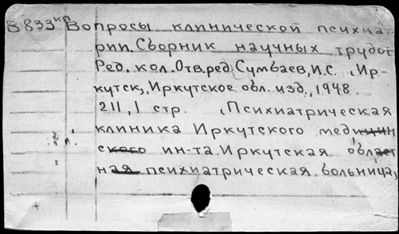 В833кр Вопросы клинической психиат
рии. Сборник научных трудов
Ред. кол. Отв. ред. Сумбаев, И.С. Ир-
кутск, Иркутское обл. изд., 1948.
211, 1 стр. (Психиатрическая
клиника Иркутского медицин
ского ин-та. Иркутская област
ная психиатрическая больница)